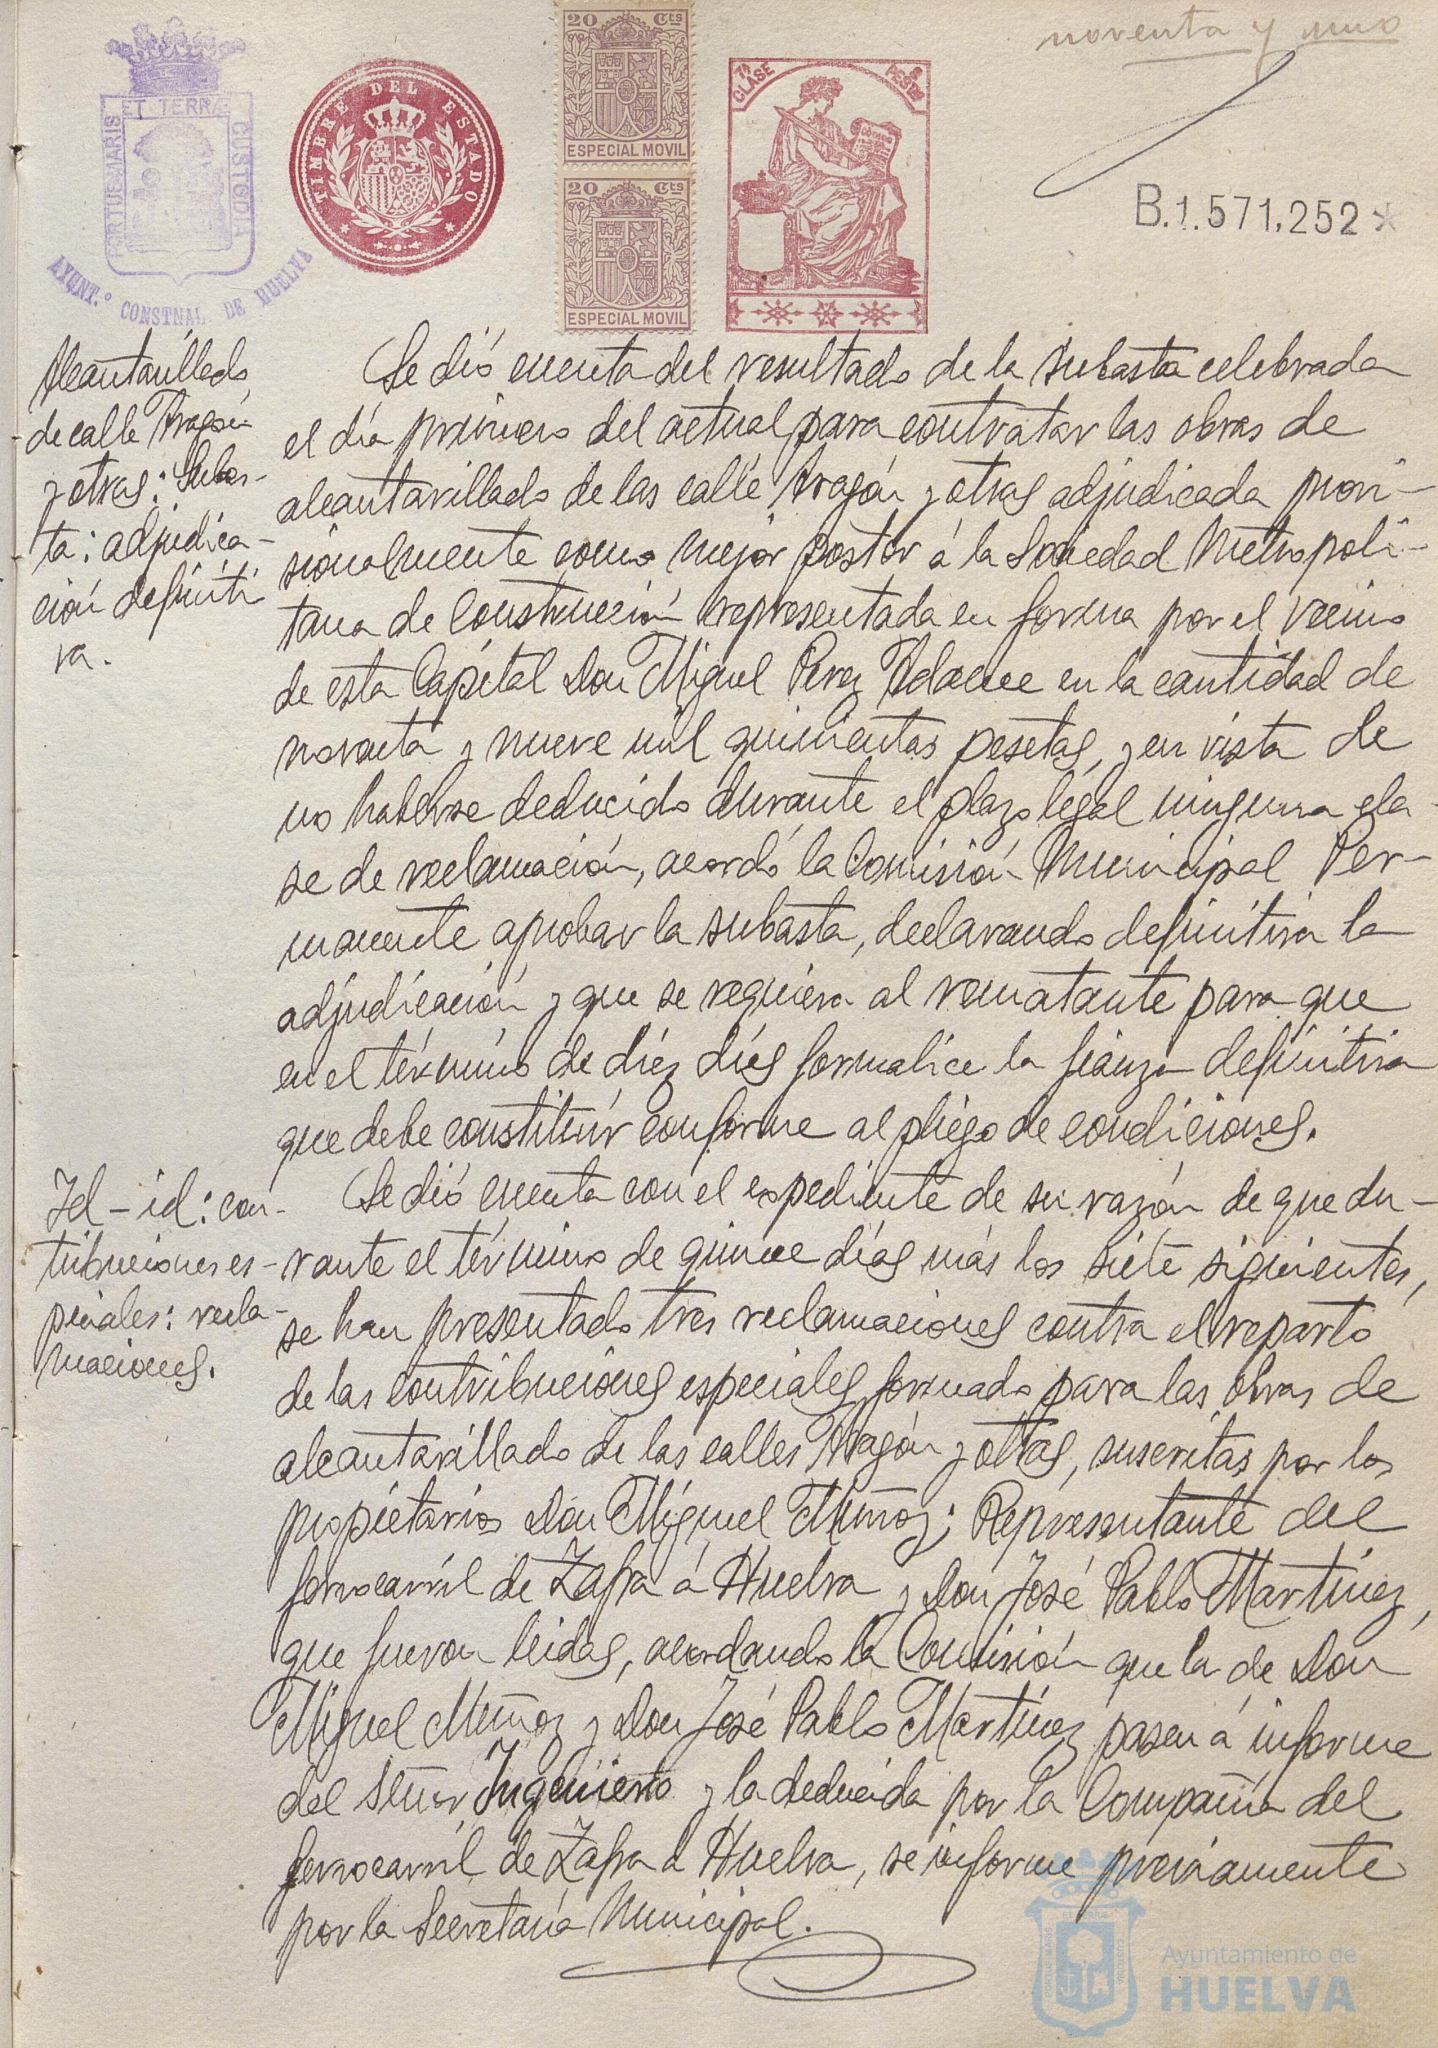 noventa y uno
PORTUS MARIS ET TERRÆ CUSTODIA
AYUNT.º CONSTNAL DE HUELVA
TIMBRE DEL ESTADO
20 Cts
ESPECIAL MOVIL
20 Cts
ESPECIAL MOVIL
7ª CLASE
B.1.571,252*
Alcantarillado
de calle Aragón
y otras: Subas-
ta: adjudica-
ción definiti
va.
Se dió cuenta del resultado de la subasta celebrada
el día primero del actual para contratar las obras de
alcantarillado de las calle Aragón y otras adjudicada provi-
sionalmente como mejor postor á la Sociedad Metropoli-
tana de Construcción representada en forma por el vecino
de esta Capital Don Miguel Perez Adame en la cantidad de
noventa y nueve mil quinientas pesetas, y en vista de
no haberse deducido durante el plazo legal ninguna cla-
se de reclamación, acordó la Comisión Municipal Per-
manente aprobar la subasta, declarando definitiva la
adjudicación y que se requiera al rematante para que
en el término de diez días formalice la fianza definitiva
que debe constituir conforme al pliego de condiciones.
Id - id: con-
tribuciones es-
peciales: recla-
maciones.
Se dió cuenta con el expediente de su razón de que du-
rante el término de quince días más los siete siguientes,
se han presentado tres reclamaciones contra el reparto
de las contribuciones especiales formado para las obras de
alcantarillado de las calles Aragón y otras, suscritas por los
propietarios Don Miguel Muñoz; Representante del
ferrocarril de Zafra á Huelva y Don José Pablo Martinez,
que fueron leidas, acordando la Comisión que la de Don
Miguel Muñoz y Don José Pablo Martínez pasen á informe
del señor Ingeniero y la deducida por la Compañía del
ferrocarril de Zafra á Huelva, se informe previamente
por la Secretaría Municipal.
Ayuntamiento de
HUELVA